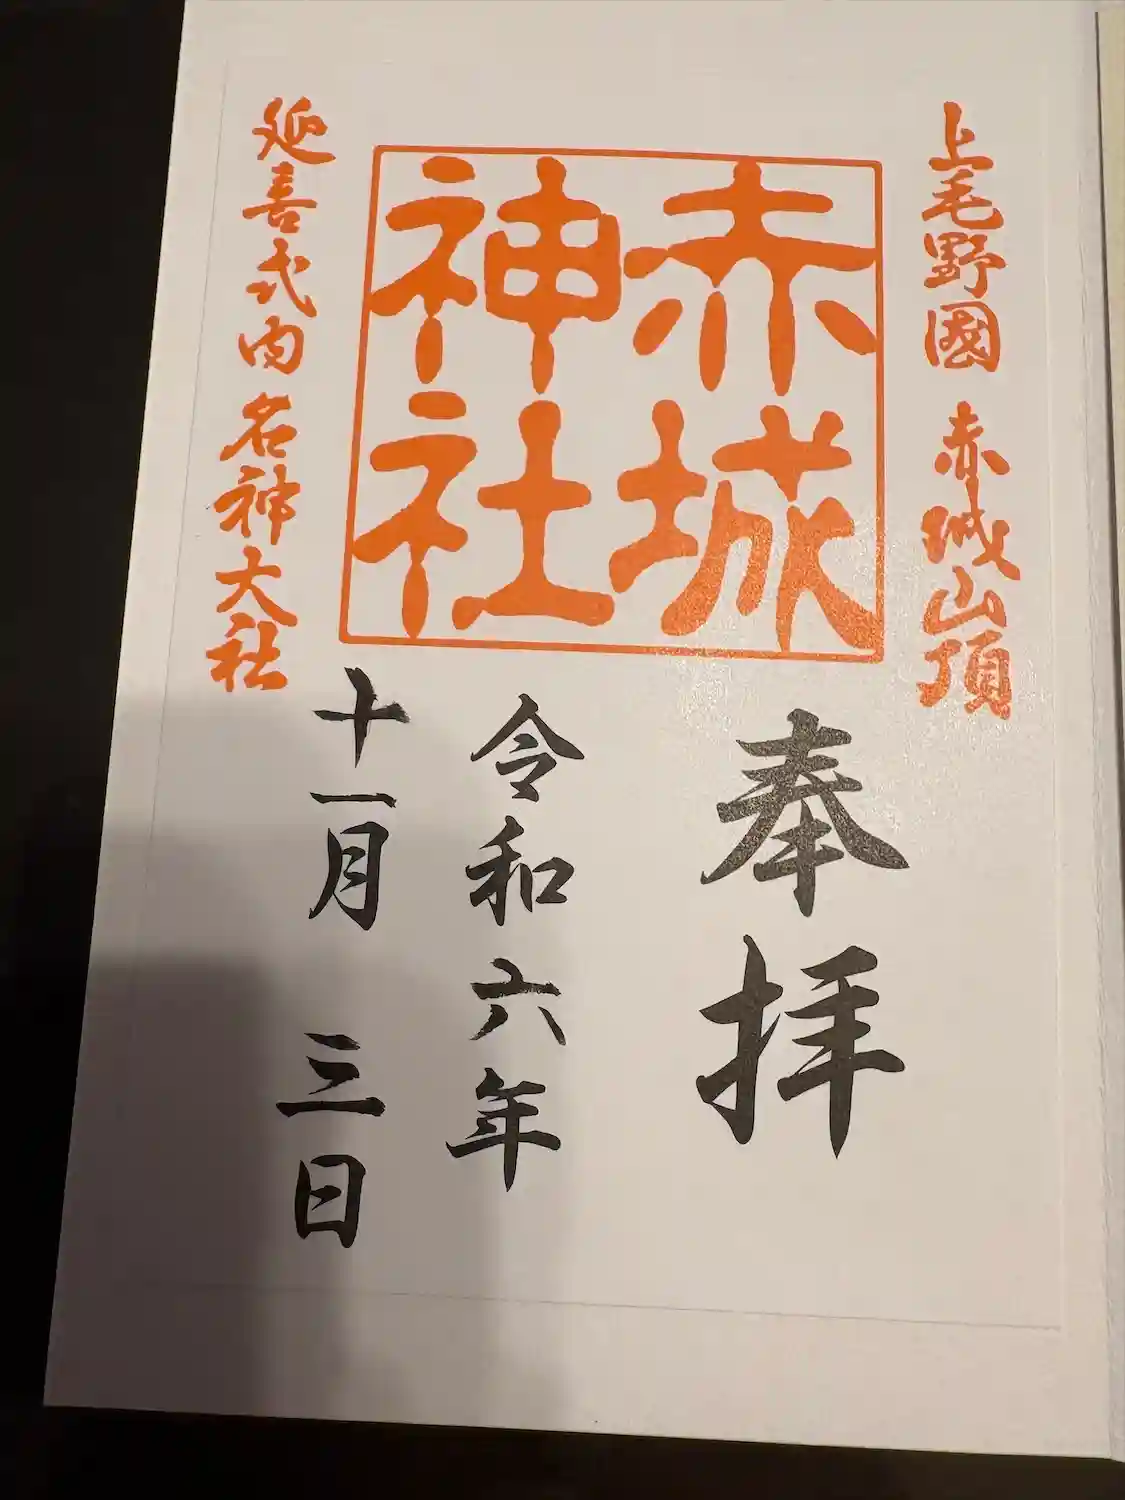 上毛野國 赤城山頂
赤城
神社
奉拝
令和六年
十一月 三日
延喜式内 名神大社